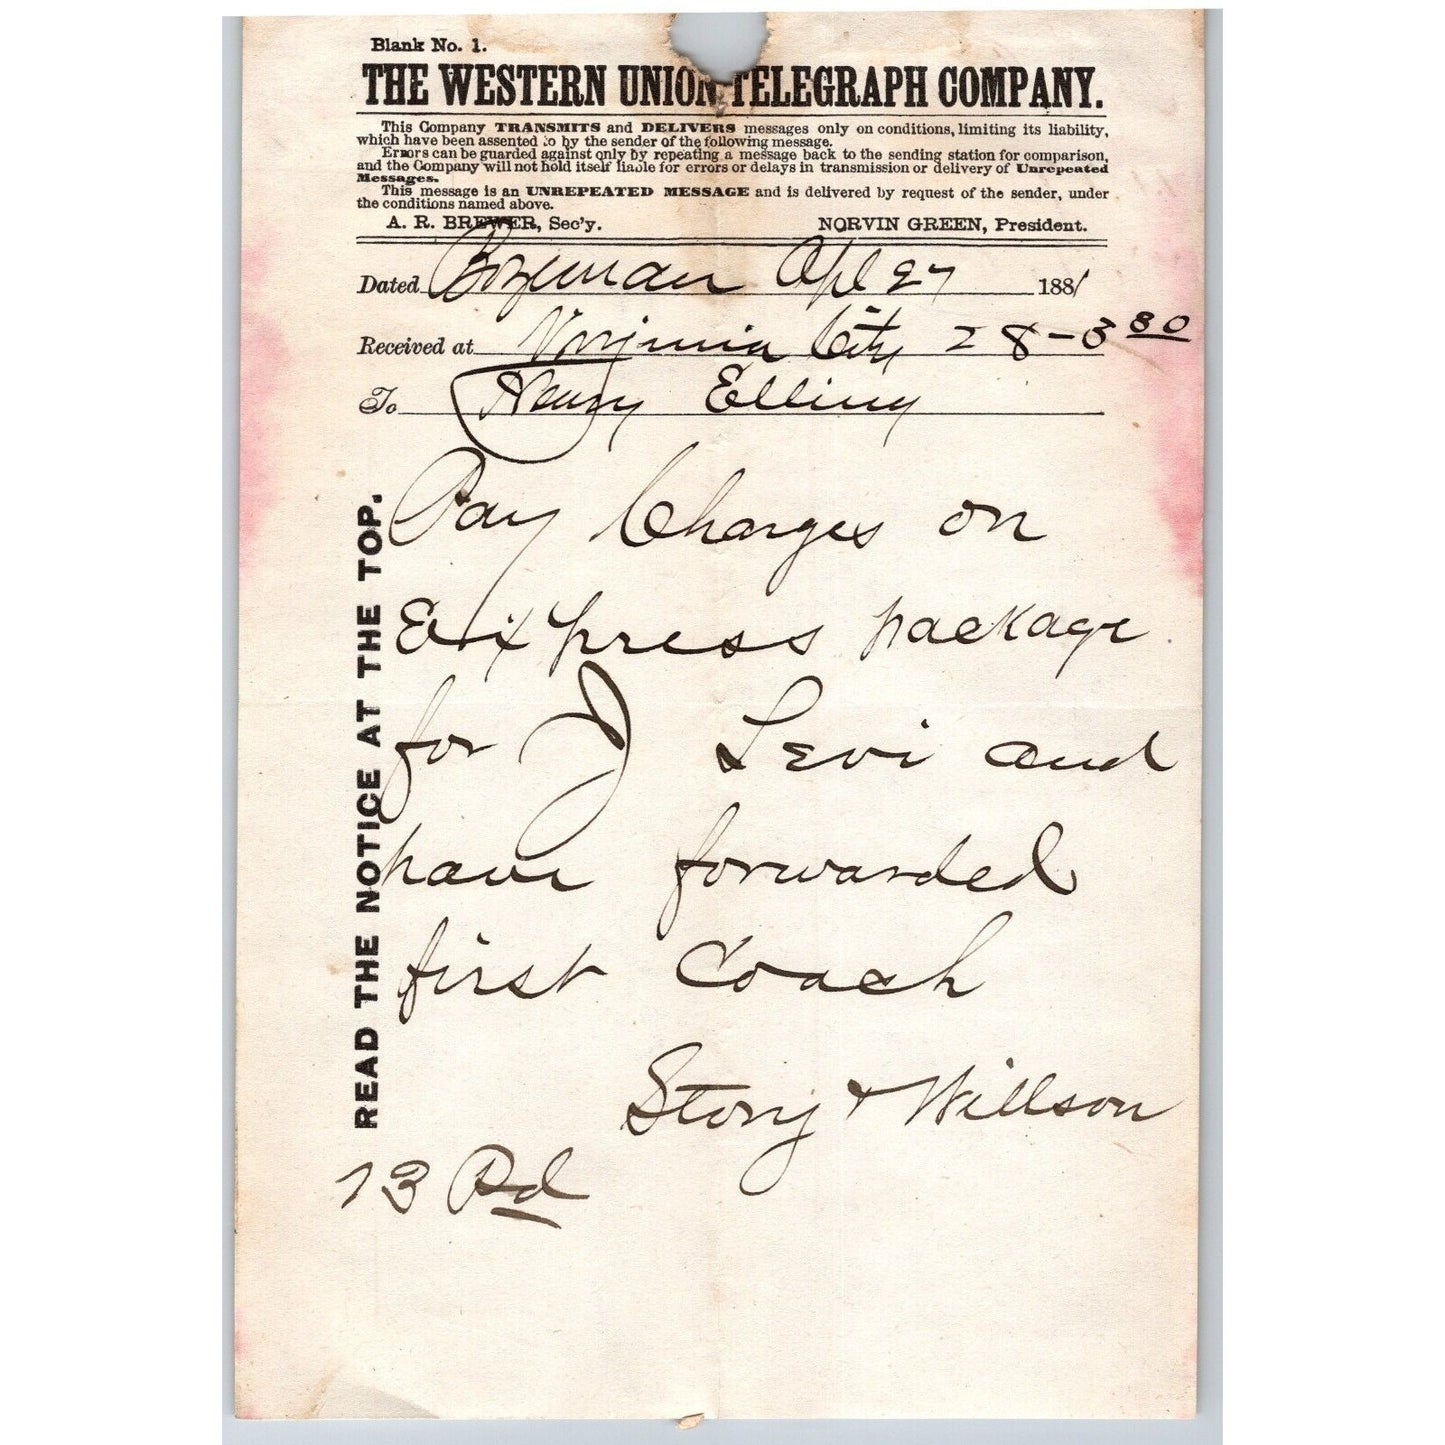 Blank No. 1.
THE WESTERN UNION TELEGRAPH COMPANY.
This Company TRANSMITS and DELIVERS messages only on conditions, limiting its liability,
which have been assented to by the sender of the following message.
Errors can be guarded against only by repeating a message back to the sending station for comparison,
and the Company will not hold itself liable for errors or delays in transmission or delivery of Unrepeated
Messages.
This message is an UNREPEATED MESSAGE and is delivered by request of the sender, under
the conditions named above.
A. R. BREWER, Sec'y. NORVIN GREEN, President.
Dated Bozeman Apl 27 1881
Received at Virginia City 28 - 3 30
To Henry Elling
READ THE NOTICE AT THE TOP.
Pay Charges on
Express package
for J Levi and
have forwarded
first Coach
Story + Willson
13 Pd